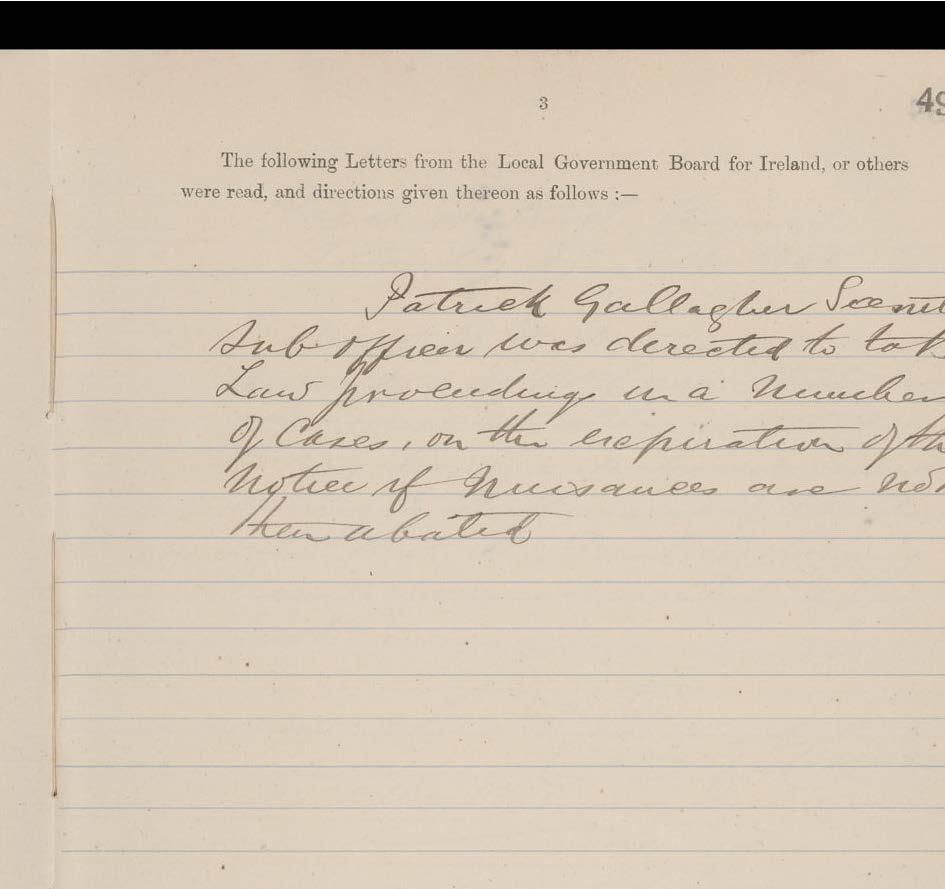 3
49
The following Letters from the Local Government Board for Ireland, or others
were read, and directions given thereon as follows :—
Patrick Gallagher
Sub officer was directed to tak
Law proceeding in a Number
Of Cases, on the expiration of th
Notice if Nuisances are not
then abated